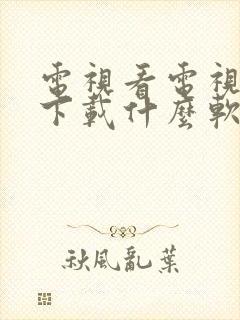 電視看電視
下載什麼軟
秋風亂葉